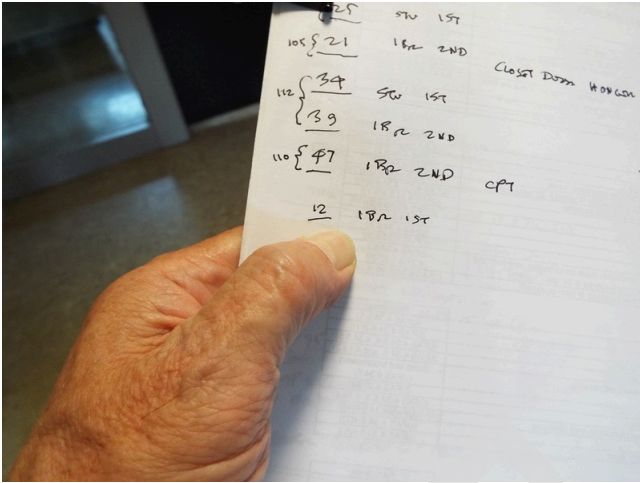 25 STU 1ST
105 { 21 1BR 2ND
CLOSET DOOR HANGER
112 { 34 STU 1ST
39 1BR 2ND
110 { 47 1BR 2ND CPT
12 1BR 1ST